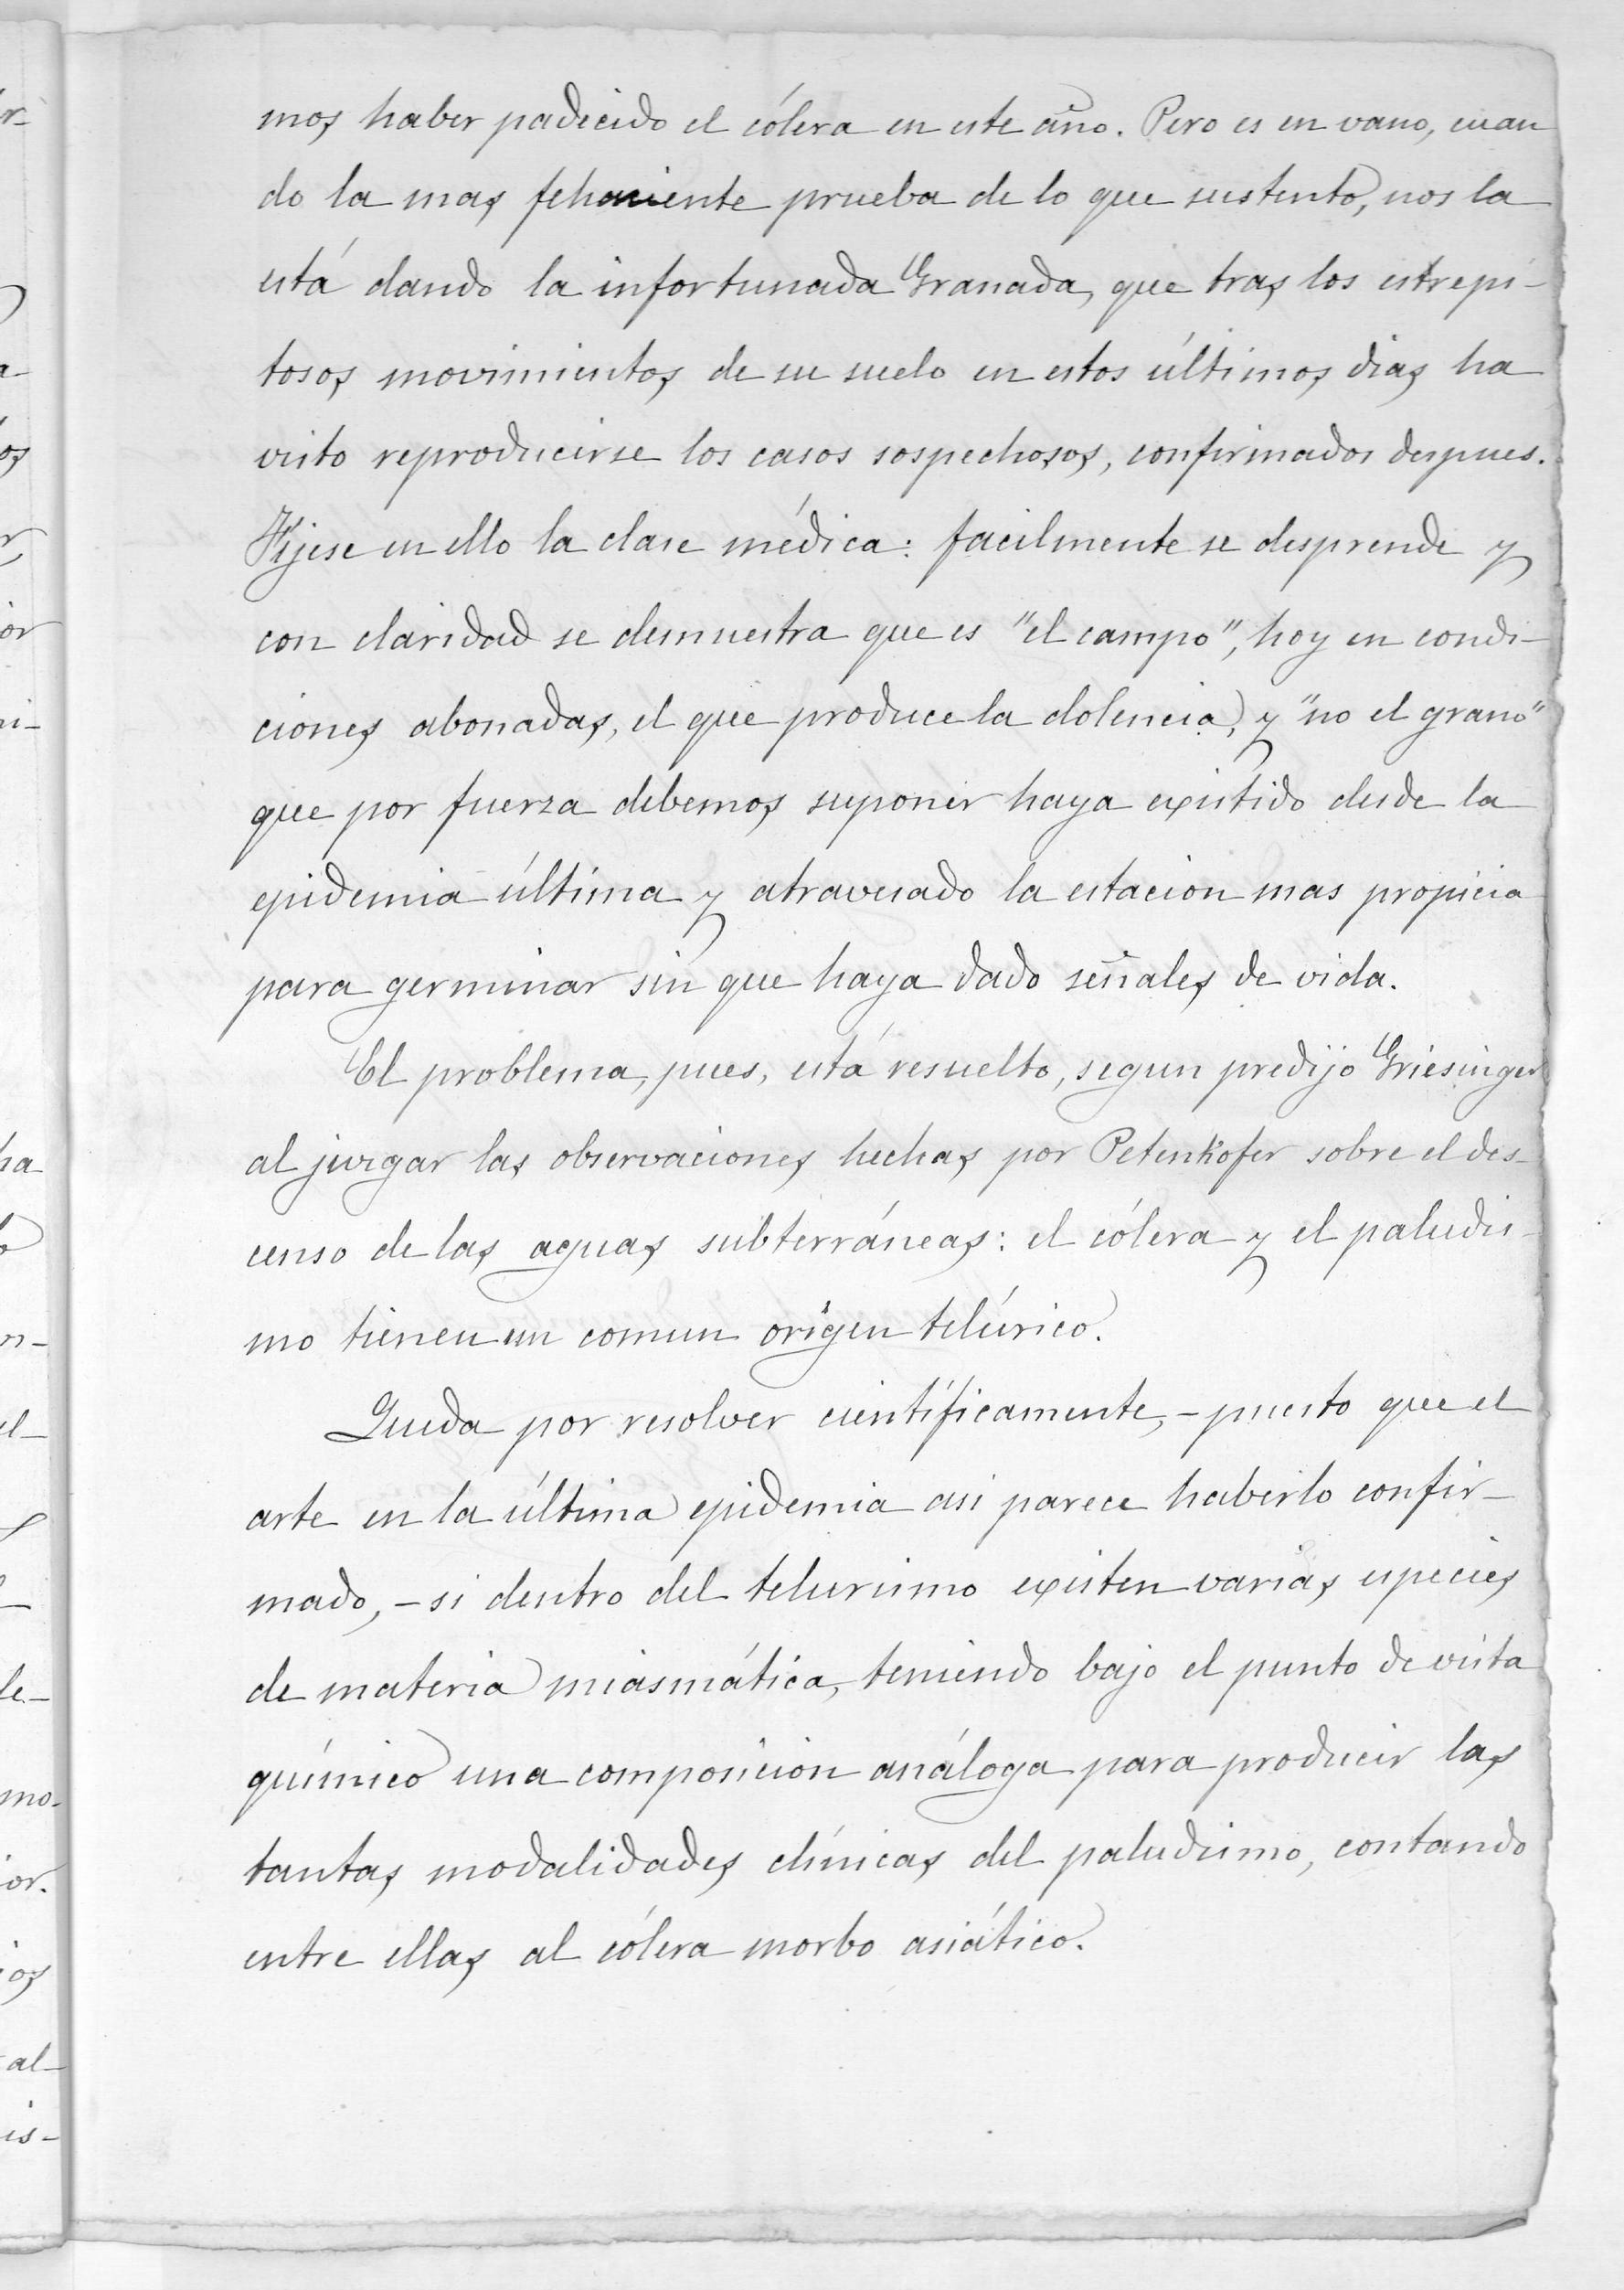 mos haber padecido el cólera en este año. Pero es en vano, cuan
do la mas fehaciente prueba de lo que sustento, nos la
está dando la infortunada Granada, que tras los estrepi-
tosos movimientos de su suelo en estos últimos dias ha
visto reproducirse los casos sospechosos, confirmados despues.
Fíjese en ello la clase médica: facilmente se desprende y
con claridad se demuestra que es "el campo", hoy en condi-
ciones abonadas, el que produce la dolencia, y "no el grano"
que por fuerza debemos suponer haya existido desde la
epidemia última y atravesado la estacion mas propicia
para germinar sin que haya dado señales de vida.
El problema, pues, está resuelto, segun predijo Griesinger
al juzgar las observaciones hechas por Petenkofer sobre el des-
censo de las aguas subterráneas: el cólera y el paludis-
mo tienen un comun orígen telúrico.
Queda por resolver científicamente, - puesto que el
arte en la última epidemia asi parece haberlo confir-
mado, - si dentro del telurismo existen varias especies
de materia miasmática, teniendo bajo el punto de vista
químico una composicion análoga para producir las
tantas modalidades clínicas del paludismo, contando
entre ellas al cólera morbo asiático.